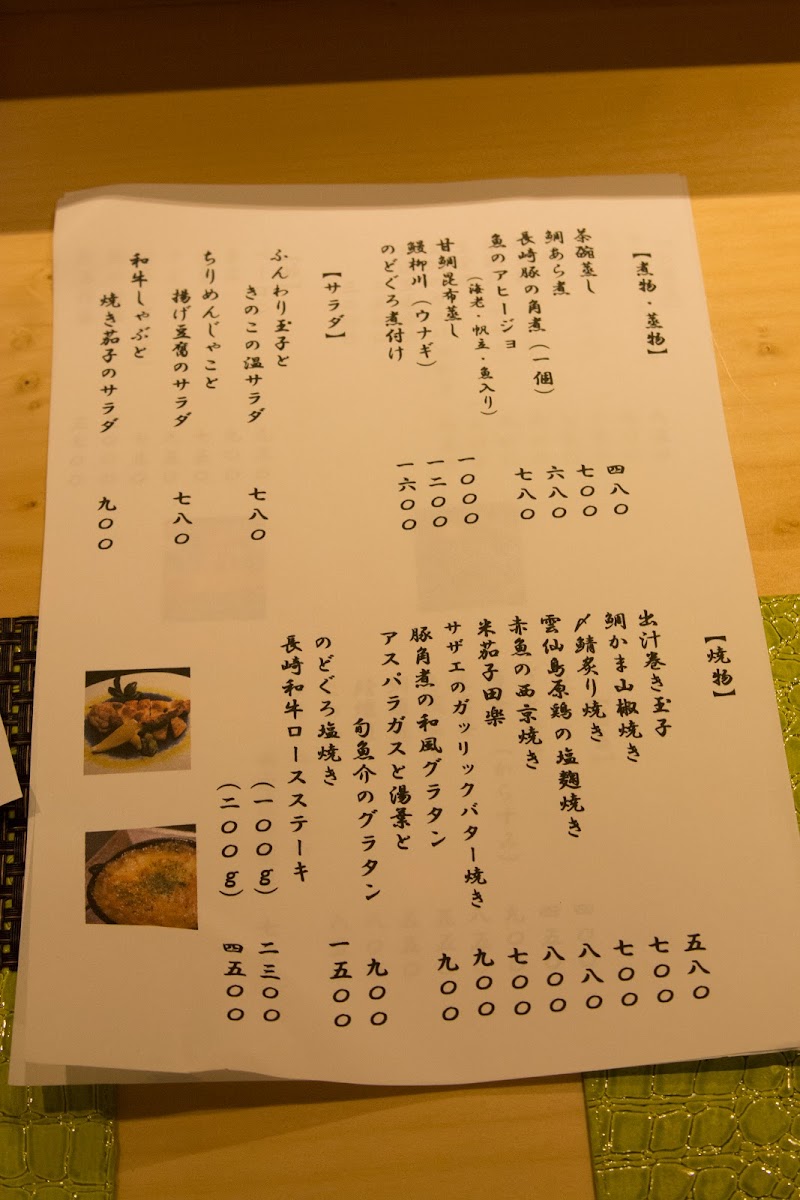 【煮物・蒸物】
茶碗蒸し 四八〇
鯛あら煮 七〇〇
長崎豚の角煮（一個） 六八〇
魚のアヒージョ 七八〇
（海老・帆立・魚入り）
甘鯛昆布蒸し 一〇〇〇
鰻柳川（ウナギ） 一二〇〇
のどぐろ煮付け 一六〇〇
【サラダ】
ふんわり玉子と
きのこの温サラダ 七八〇
ちりめんじゃこと
揚げ豆腐のサラダ 七八〇
和牛しゃぶと
焼き茄子のサラダ 九〇〇
【焼物】
出汁巻き玉子 五八〇
鯛かま山椒焼き 七〇〇
〆鯖炙り焼き 七〇〇
雲仙島原鶏の塩麹焼き 八八〇
赤魚の西京焼き 八〇〇
米茄子田楽 七〇〇
サザエのガッリックバター焼き 九〇〇
豚角煮の和風グラタン 九〇〇
アスパラガスと湯葉と
旬魚介のグラタン 九〇〇
のどぐろ塩焼き 一五〇〇
長崎和牛ロースステーキ
（一〇〇ｇ） 二三〇〇
（二〇〇ｇ） 四五〇〇